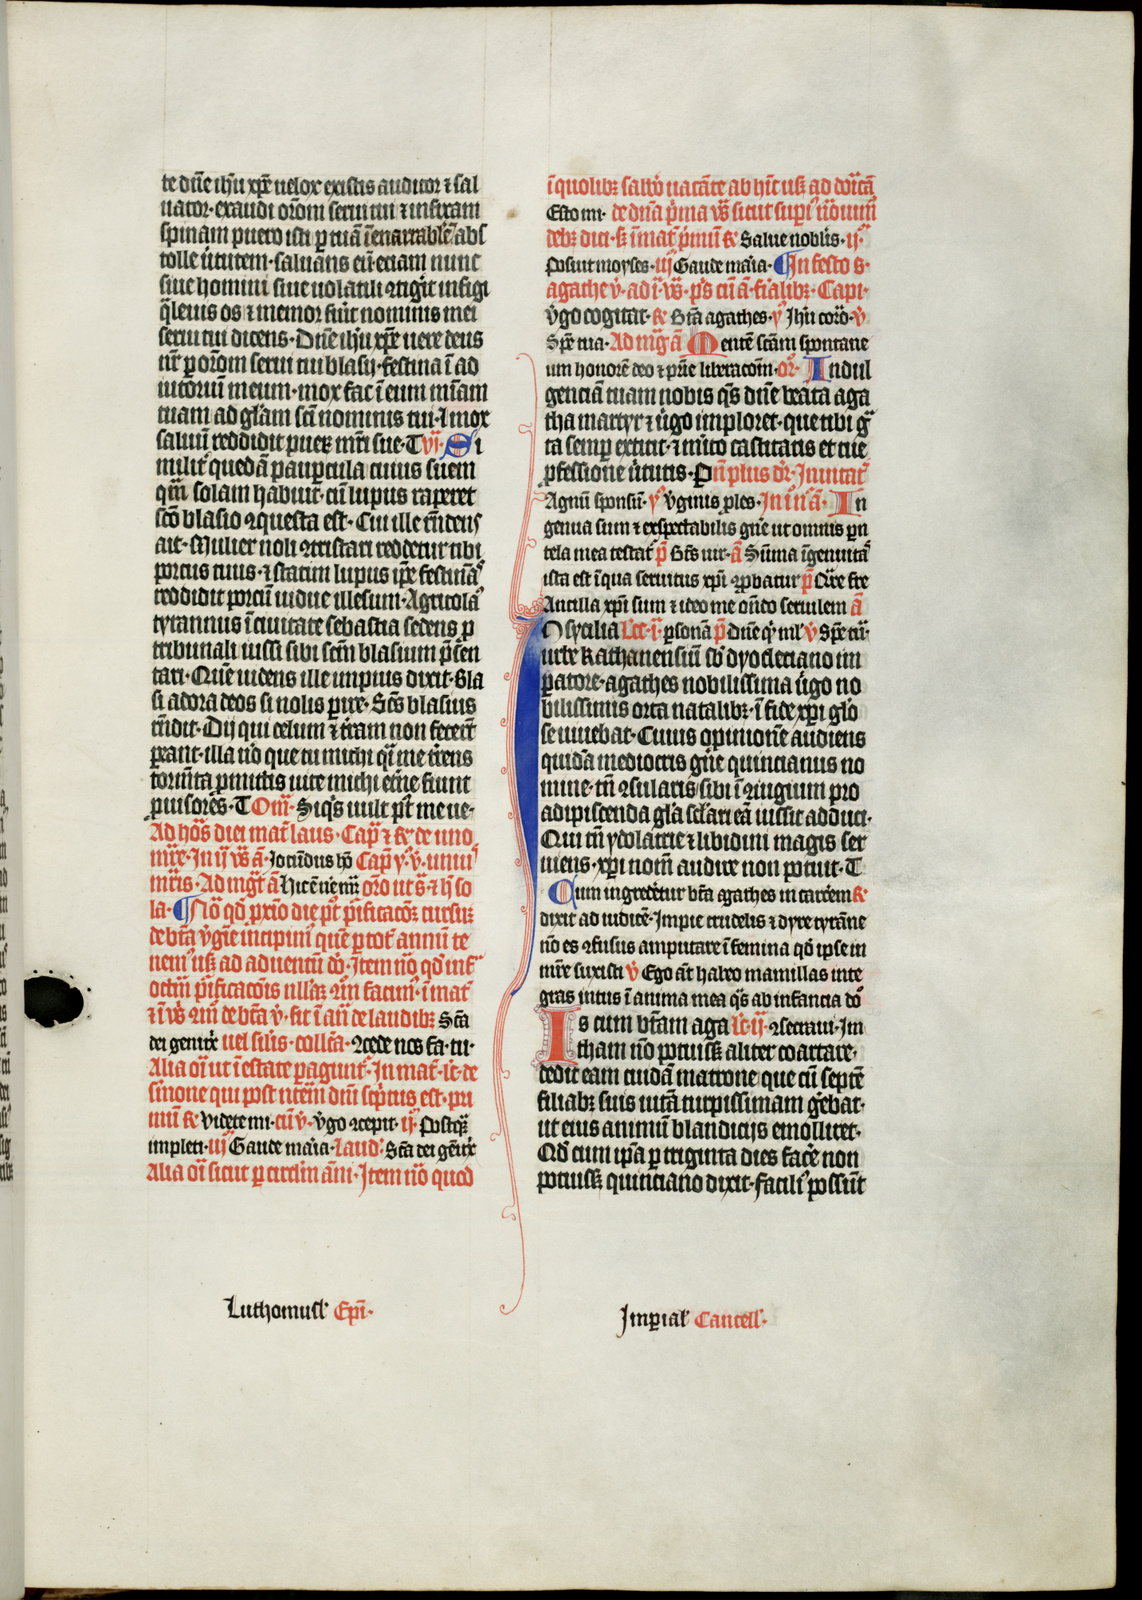 te dn̄e ih̄u xp̄e uelox existis auditor ⁊ sal
uator· exaudi orōm serui tui ⁊ infixam
spinam puero isti ꝑ tuā īenarrablē abs
tolle ūtutem· saluans eū· etiam nunc
siue homini siue uolatili ꝯtigit̄ infigi
qͥleuis os ⁊ memor fūit nominis mei
serui tui dicens· Dn̄e ih̄u xp̄e uere deus
nr̄ ꝑ orōm serui tui blasij· festina ī ad
iutoriū meum· mox fac ī eum mīam
tuam ad gl̄am sc̄i nominis tui· I mox
saluū reddidit pueꝝ mr̄i sue· T vi· Si
militͥ quedā pauꝑcula cuius suem
qm̄ solam habuit· cū lupus raperet
sc̄o blasio ꝯquesta est· Cui ille rn̄dens
ait· Mulier noli ꝯtristari reddetur tibi
porcus tuus· ⁊ statim lupus ip̄e festināˢ
reddidit porcū uidue illesum· Agricolaˢ
tyrannus ī ciuitate sebastia sedens ꝓ
tribunali iussi sibi scm̄ blasium p̄sen
tari· Quē uidens ille impius dixit· Bla
si adora deos si nolis ꝑire· Sc̄s blasius
rn̄dit· Dij qui celum ⁊ t̄ram non fecer̄t
ꝑeant· illa ūo que tu michi qͥ me t̄rens
torm̄ta ꝓmittis uite michi et̄ne fiunt
ꝓuisores· T Om̄· Siqͥs uult pt̄ me ue·
Ad hōs diei mat̄ laus· Cap̄ ⁊ ꝶ de uno
mr̄e· In ij vs̄ ā· Iocūdus hō Cap̄ y̆ v̆· uniuˢ
mr̄is· Ad mg̅t ā Hic ē uem̄ orō ut s̄· ⁊ h̄ so
la· ¶ Nō qd̄ prīo die pt̄ p̄ificatōꝫ cursus
de bt̄a v̆gīe incipimꝰ quē ꝑ tot̄ annū te
nemꝰ usꝫ ad aduentū dō· Item nō qd̄ infˢ
octū p̄ificatōis ullaꝫ ꝶm facimꝰ ī mat̄
⁊ ī vs̄ ꝶm̄ de bt̄a v̆· sit ī aū de laudibꝫ Sc̄a
dei genitͥx uel silis· collc̄a· ꝯcede nos fa· tu·
Alia oī ut ī estate ꝑagunt̄· In mat̄ ic̄ de
smone qui post itēm dn̄i scp̄tus est· pri
mū ꝶ Videte mi· cū v̆· v̆go ꝯcepit· ij Postqͣꝫ
implen· iij Gaude māia· laud· Sc̄a dei geītͥx
Alia oī sicut ꝑ circlm āni· Item nō quod
Luthomusl̕ Ep̄i·
ī quolibꝫ sabb̄o uacāte ab hīc usꝫ ad dōic̄ā
Esto mi· de dn̄a p̄ma vs̄ sicut supͥ nōuimꝰ
debꝫ dici· sꝫ ī mat̄ p̄mū ꝶ Salue nobilis· ij·
Posuit moyses· iij Gaude māia· ¶ In festo s·
agathe v̆· ad ī· vs̄· p̄s cū ā· fr̄alibꝫ· Capi·
v̆go cogitat· ꝶ Bt̄a agathes· y̆ Ih̄u corō· v̆
Spē tua· Ad mg̅ ā Mentē scām spontane
um honorē deo ⁊ pr̄ie liberacōm· or̄· Indul
genciā tuam nobis qs̄ dn̄e beata aga
tha martyr ⁊ ūgo imploret· que tibi gͣ
ta semꝑ extitit· ⁊ mͥto castitatis et tue
ꝓfessione ūtutis· P n̄ plus dr̄· Inuitat̄
Agnū sponsū· y̆ v̆ginis ꝓles· In i n̄ ā· In
genua sum ⁊ exspectabilis gn̄e ut omnis pn̄
tela mea testat̄ p̄ Bt̄s uir· ā Sūma īgenuitāˢ
ista est ī qua seruitus xp̄i ꝯꝓbatur p̄ Qͣre fre
Ancilla xp̄i sum ⁊ ideo me oñdo seruilem ā
O sycilia Lc̄· i· ꝑsonā p̄ Dn̄e qͥ mlͥ· v̆ Spē tu·
urbe Kathanensiū sb̄ dyocleciano im
ꝑatore· agathes nobilissima ūgo no
bilissimis orta natalibꝫ· ī fide xp̄i gl̄o
se uiuebat· Cuius opinionē audiens
quidā mediocris gn̄e quincianus no
mine· tn̄ ꝯsularis· sibi ī ꝯiugium pro
adipiscenda gl̄a scl̄ari eā iussit adduci·
Qui tn̄ ydolatrie ⁊ libidini magis ser
uiens· xp̄i nom̄ audire non potuit· T
Cum ingredētur bt̄a agathes in carcēm ꝶ
dixit ad iudicē· Impie crudelis ⁊ dyre tyrāne
nō es ꝯfusus amputare ī femina qd̄ ipse in
mr̄e suxisti v̆ Ego aūt habeo mamillas inte
gras intus ī anima mea qͣs ab infancia dō
Is cum bt̄am aga lc̄· ij· ꝯsecraui· Im
tham nō potuissꝫ aliter coartare·
dedit eam cuidā matrone que cū septē
filiabꝫ suis uitā turpissimam gēbat·
ut eius animū blandicijs emolliret·
Qd̄ cum ip̄a ꝑ triginta dies facē non
potuissꝫ quinciano dixit· faciliꝰ possūt
Imꝑial̕ Cancell·